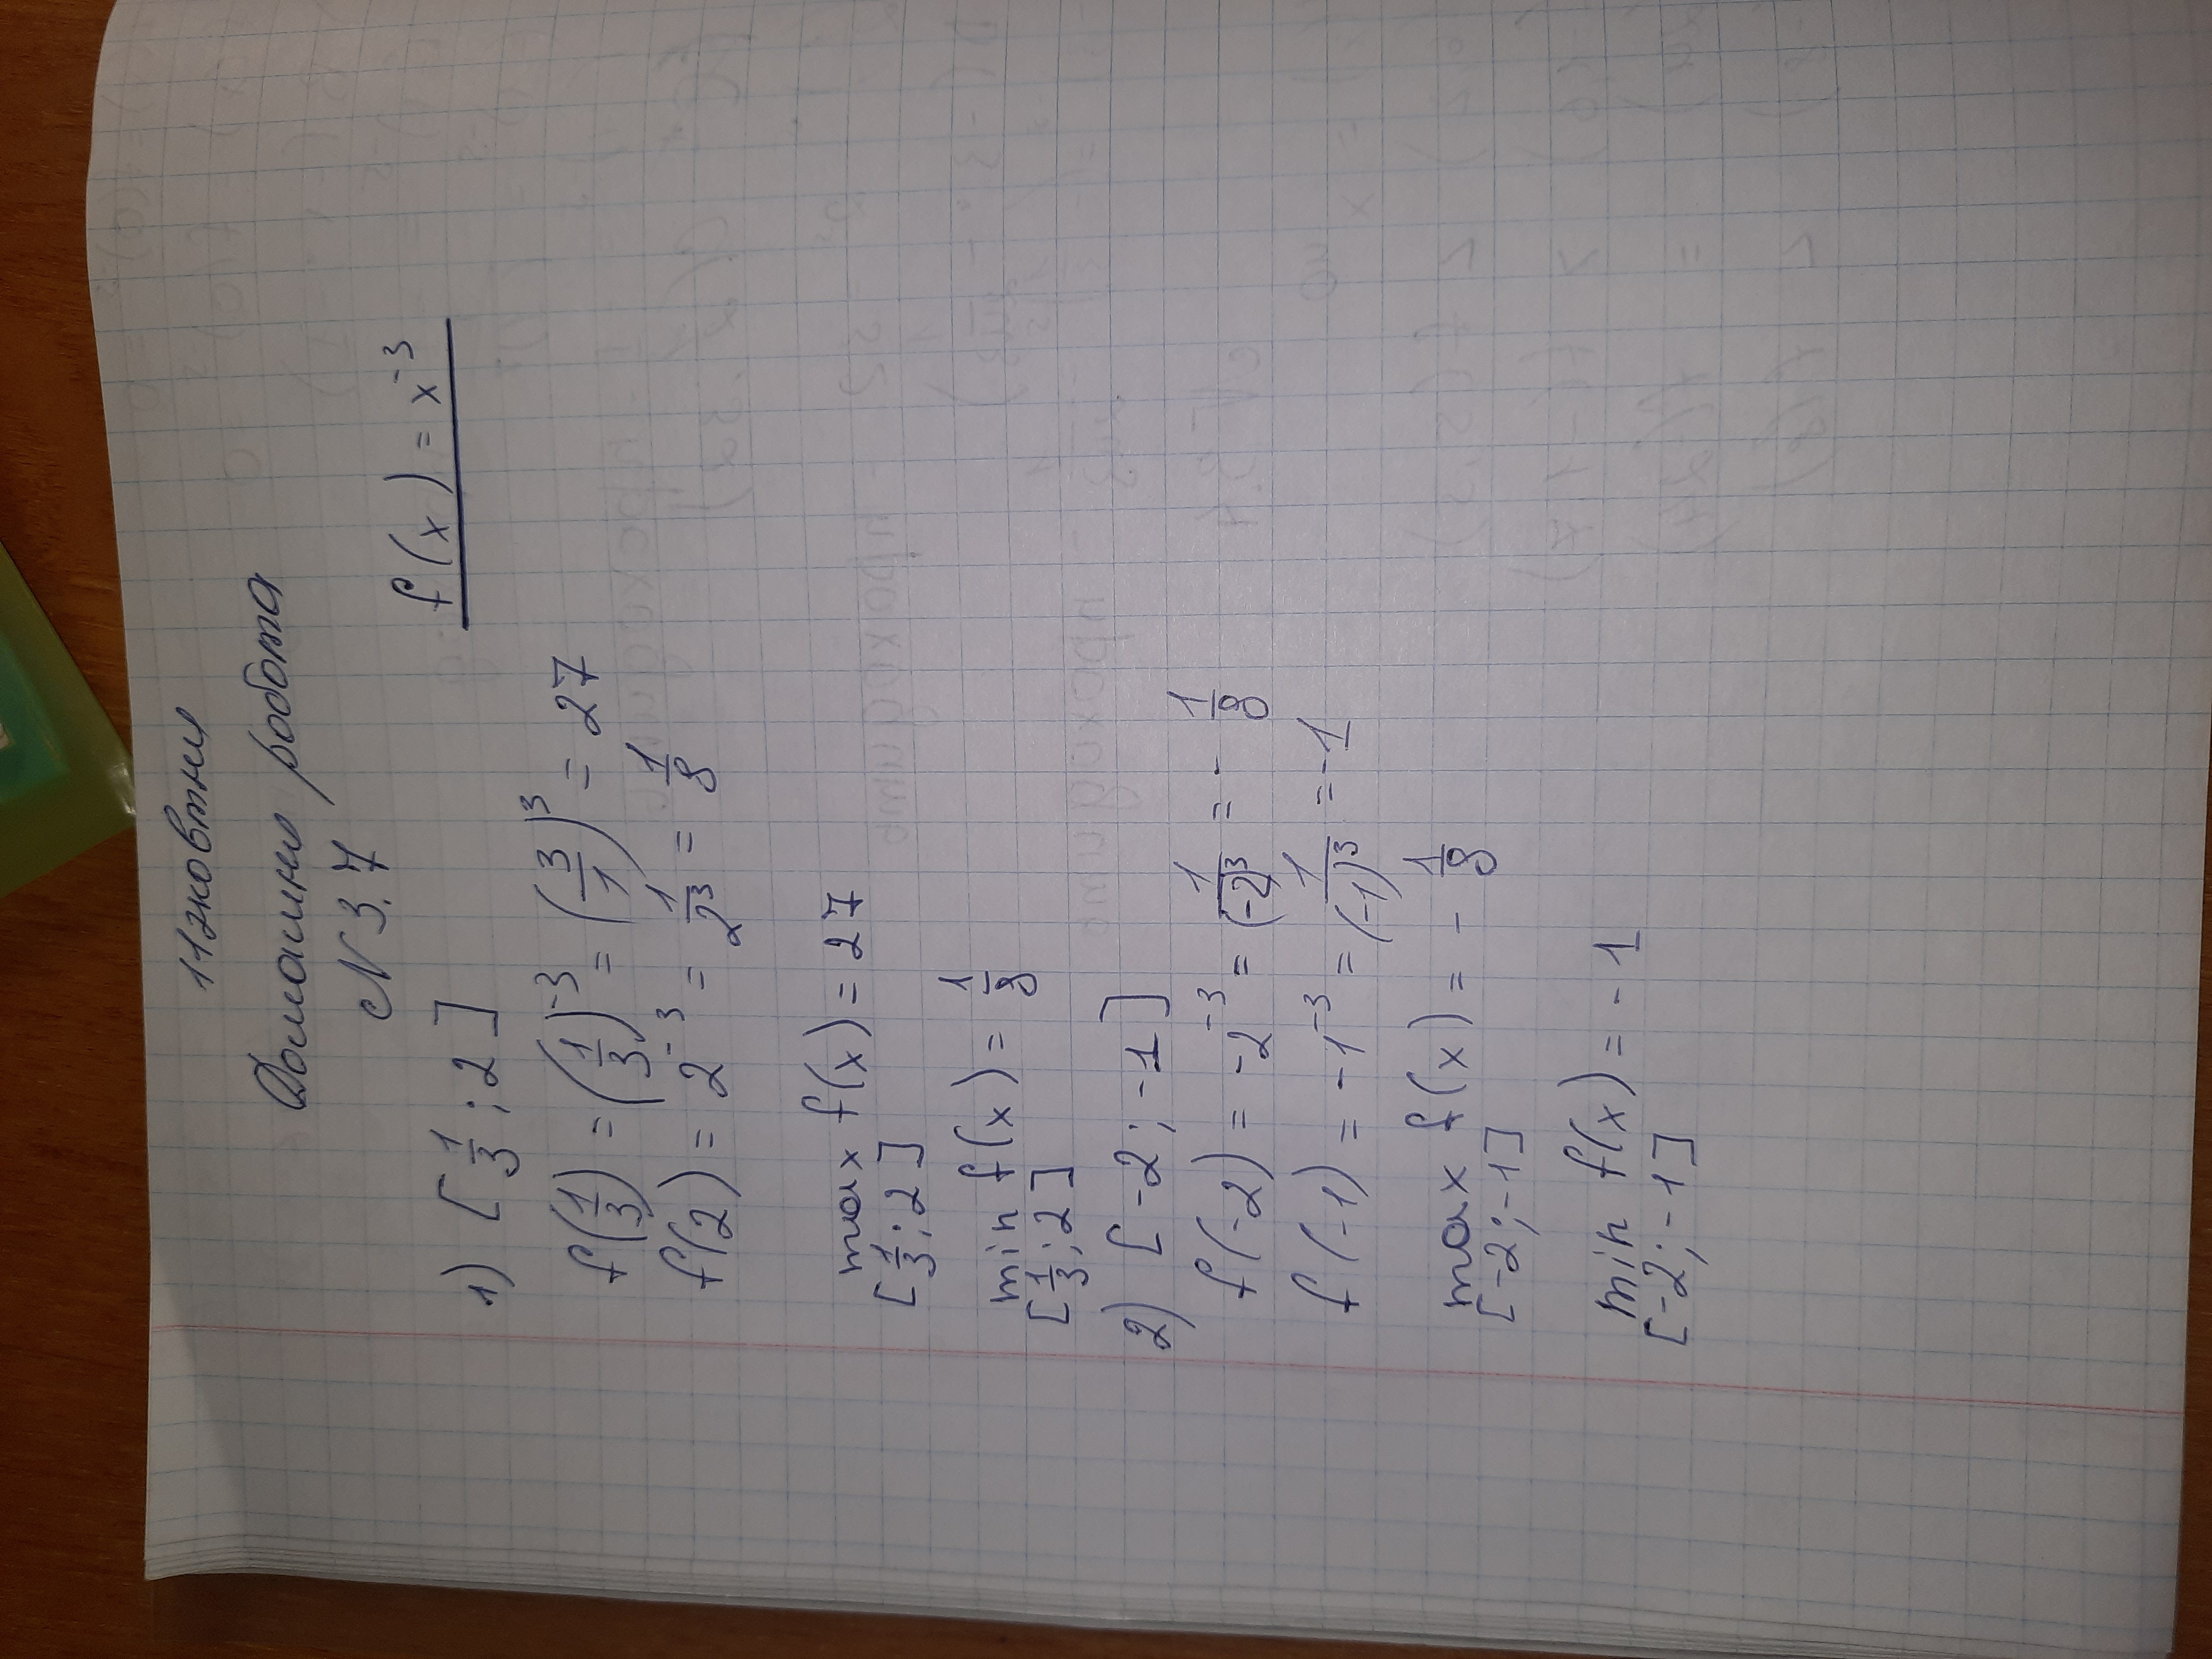 11 жовтня
Домашня робота
№ 3.7
f(x) = x⁻³
1) [1/3; 2]
f(1/3) = (1/3)⁻³ = (3/1)³ = 27
f(2) = 2⁻³ = 1/2³ = 1/8
max f(x) = 27
[1/3; 2]
min f(x) = 1/8
[1/3; 2]
2) [-2; -1]
f(-2) = -2⁻³ = 1/(-2)³ = - 1/8
f(-1) = -1⁻³ = 1/(-1)³ = -1
max f(x) = - 1/8
[-2; -1]
min f(x) = -1
[-2; -1]